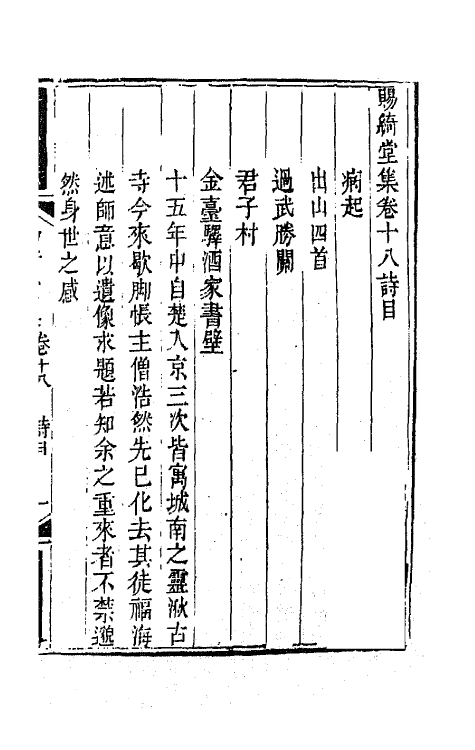 賜綺堂集卷十八詩目
病起
出山四首
過武勝關
君子村
金臺驛酒家書壁
十五年中自楚入京三次皆寓城南之靈湫古
寺今來歇脚悵主僧浩然先已化去其徒福海
述師意以遺像求題若知余之重來者不禁邈
然身世之感
卷十八
詩目
一